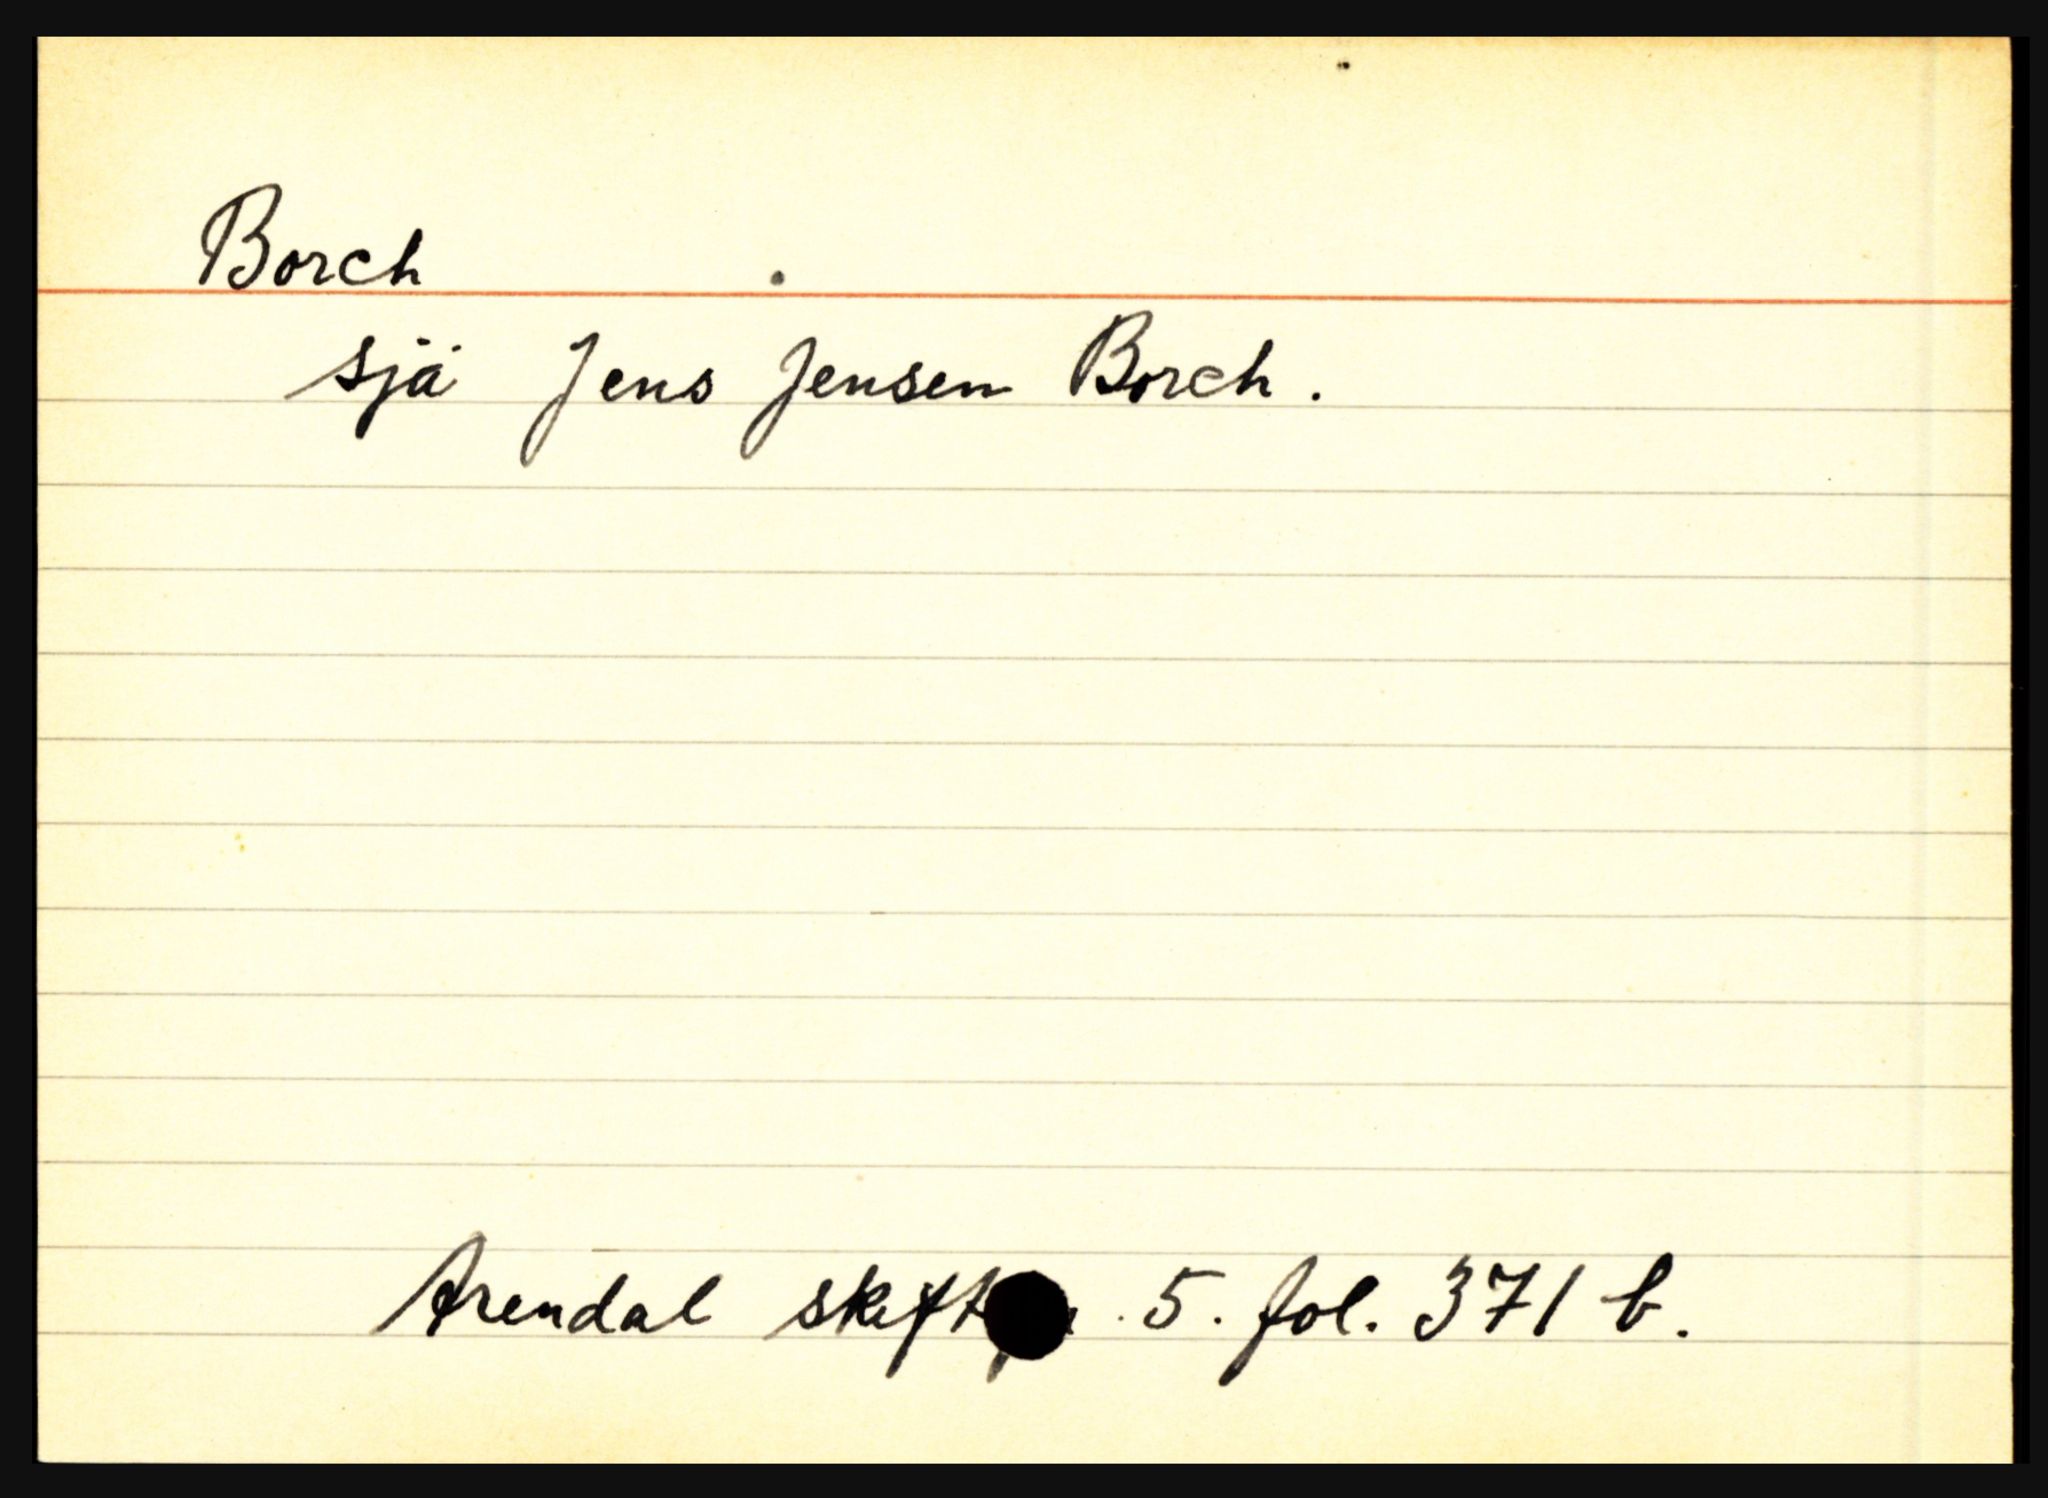 Borch
sjå Jens Jensen Borch.
Arendal 5. fol. 371 b.